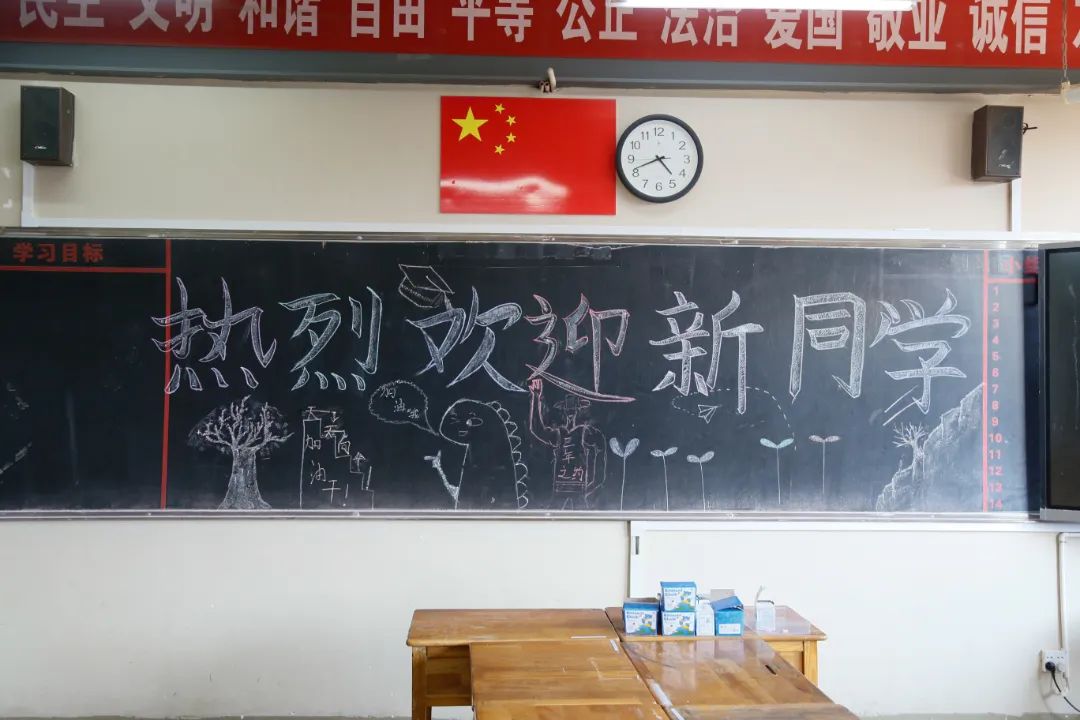 民主 文明 和谐 自由 平等 公正 法治 爱国 敬业 诚信
学习目标
热烈欢迎新同学
加油
加油干!
三年之约
小
1
2
3
4
5
6
7
8
9
10
11
12
13
14
12
1
2
3
4
5
6
7
8
9
10
11